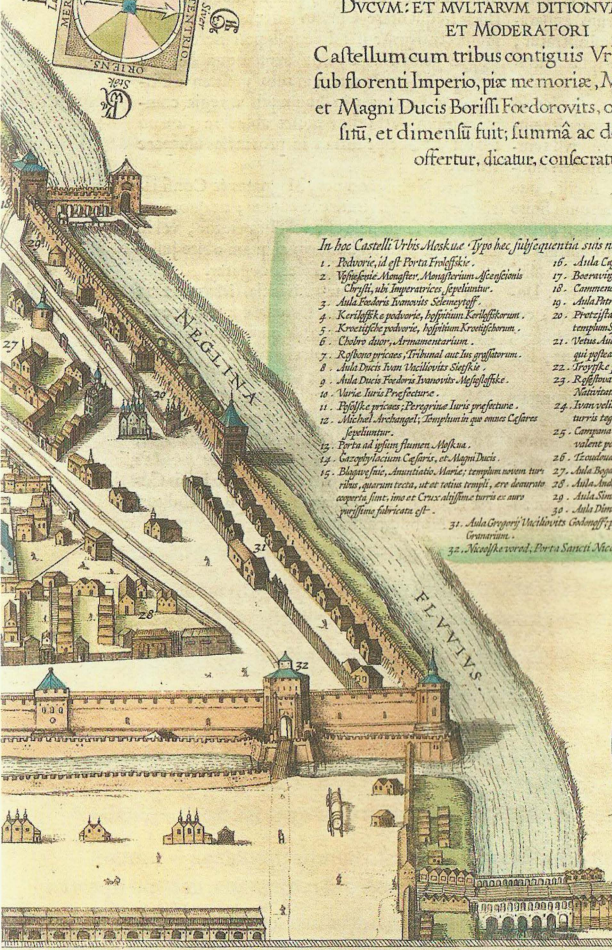 DVCVM: ET MVLTARVM DITIONV
ET MODERATORI
Castellum cum tribus contiguis Vr
sub florenti Imperio, piæ memoriæ, M
et Magni Ducis Borissi Fœdorovits, o
sitū, et dimensū fuit; summâ ac d
offertur, dicatur, consecrat
MER
ORIENS
SEPTENTRIO
In hoc Castelli Urbis Moskuæ Typo hæc subsequentia suis n
1. Podvorie, id est Porta Froleffskie.
2. Vosnesenie Monaster, Monasterium Ascensionis
Christi, ubi Imperatrices sepeliuntur.
3. Aula Fœderis Ivanovits Selemeytoff.
4. Kerilofske podvorie, hospitium Kerilofskorum.
5. Kroetitsche podvorie, hospitium Kroetischorum.
6. Chobro duor, Armamentarium.
7. Rosbono pricaes, Tribunal aut Ius grassatorum.
8. Aula Ducis Ivan Vaciliovits Sietskie.
9. Aula Ducis Foedoris Ivanovits
10. Variæ Iuris Præfecturæ.
11. Posolske pricaes; Peregrinæ Iuris præfecturæ.
12. Michael Archangel; Templum in quo omnes Cæsares
sepeliuntur.
13. Porta ad ipsum flumen Moskua.
14. Gazophylacium Cæsaris, et Magni Ducis.
15. Blagavesnie, Anuntiatio Mariæ; templum novem tur
ribus, quarum tecta, ut et totius templi, ære deaurato
cooperta sunt, imo et Crux altissimæ turris ex auro
purissimo fabricata est.
16. Aula
17. Boeravig
18. Cammen
19. Aula Patr
20.
templum
21. Vetus Au
qui postea
22. Troyfke
23.
Nativitat
24. Ivan veli
turris teg
25. Campana
valent p
26.
27. Aula Boga
28. Aula And
29. Aula Sim
30. Aula Dim
31. Aula Gregorij Vaciliovits Godonoff; p
Granarium.
32. Nicoolske vorod; Porta Sancti Nic
NEGLINA
FLVVIVS.
29
27
30
31
28
32